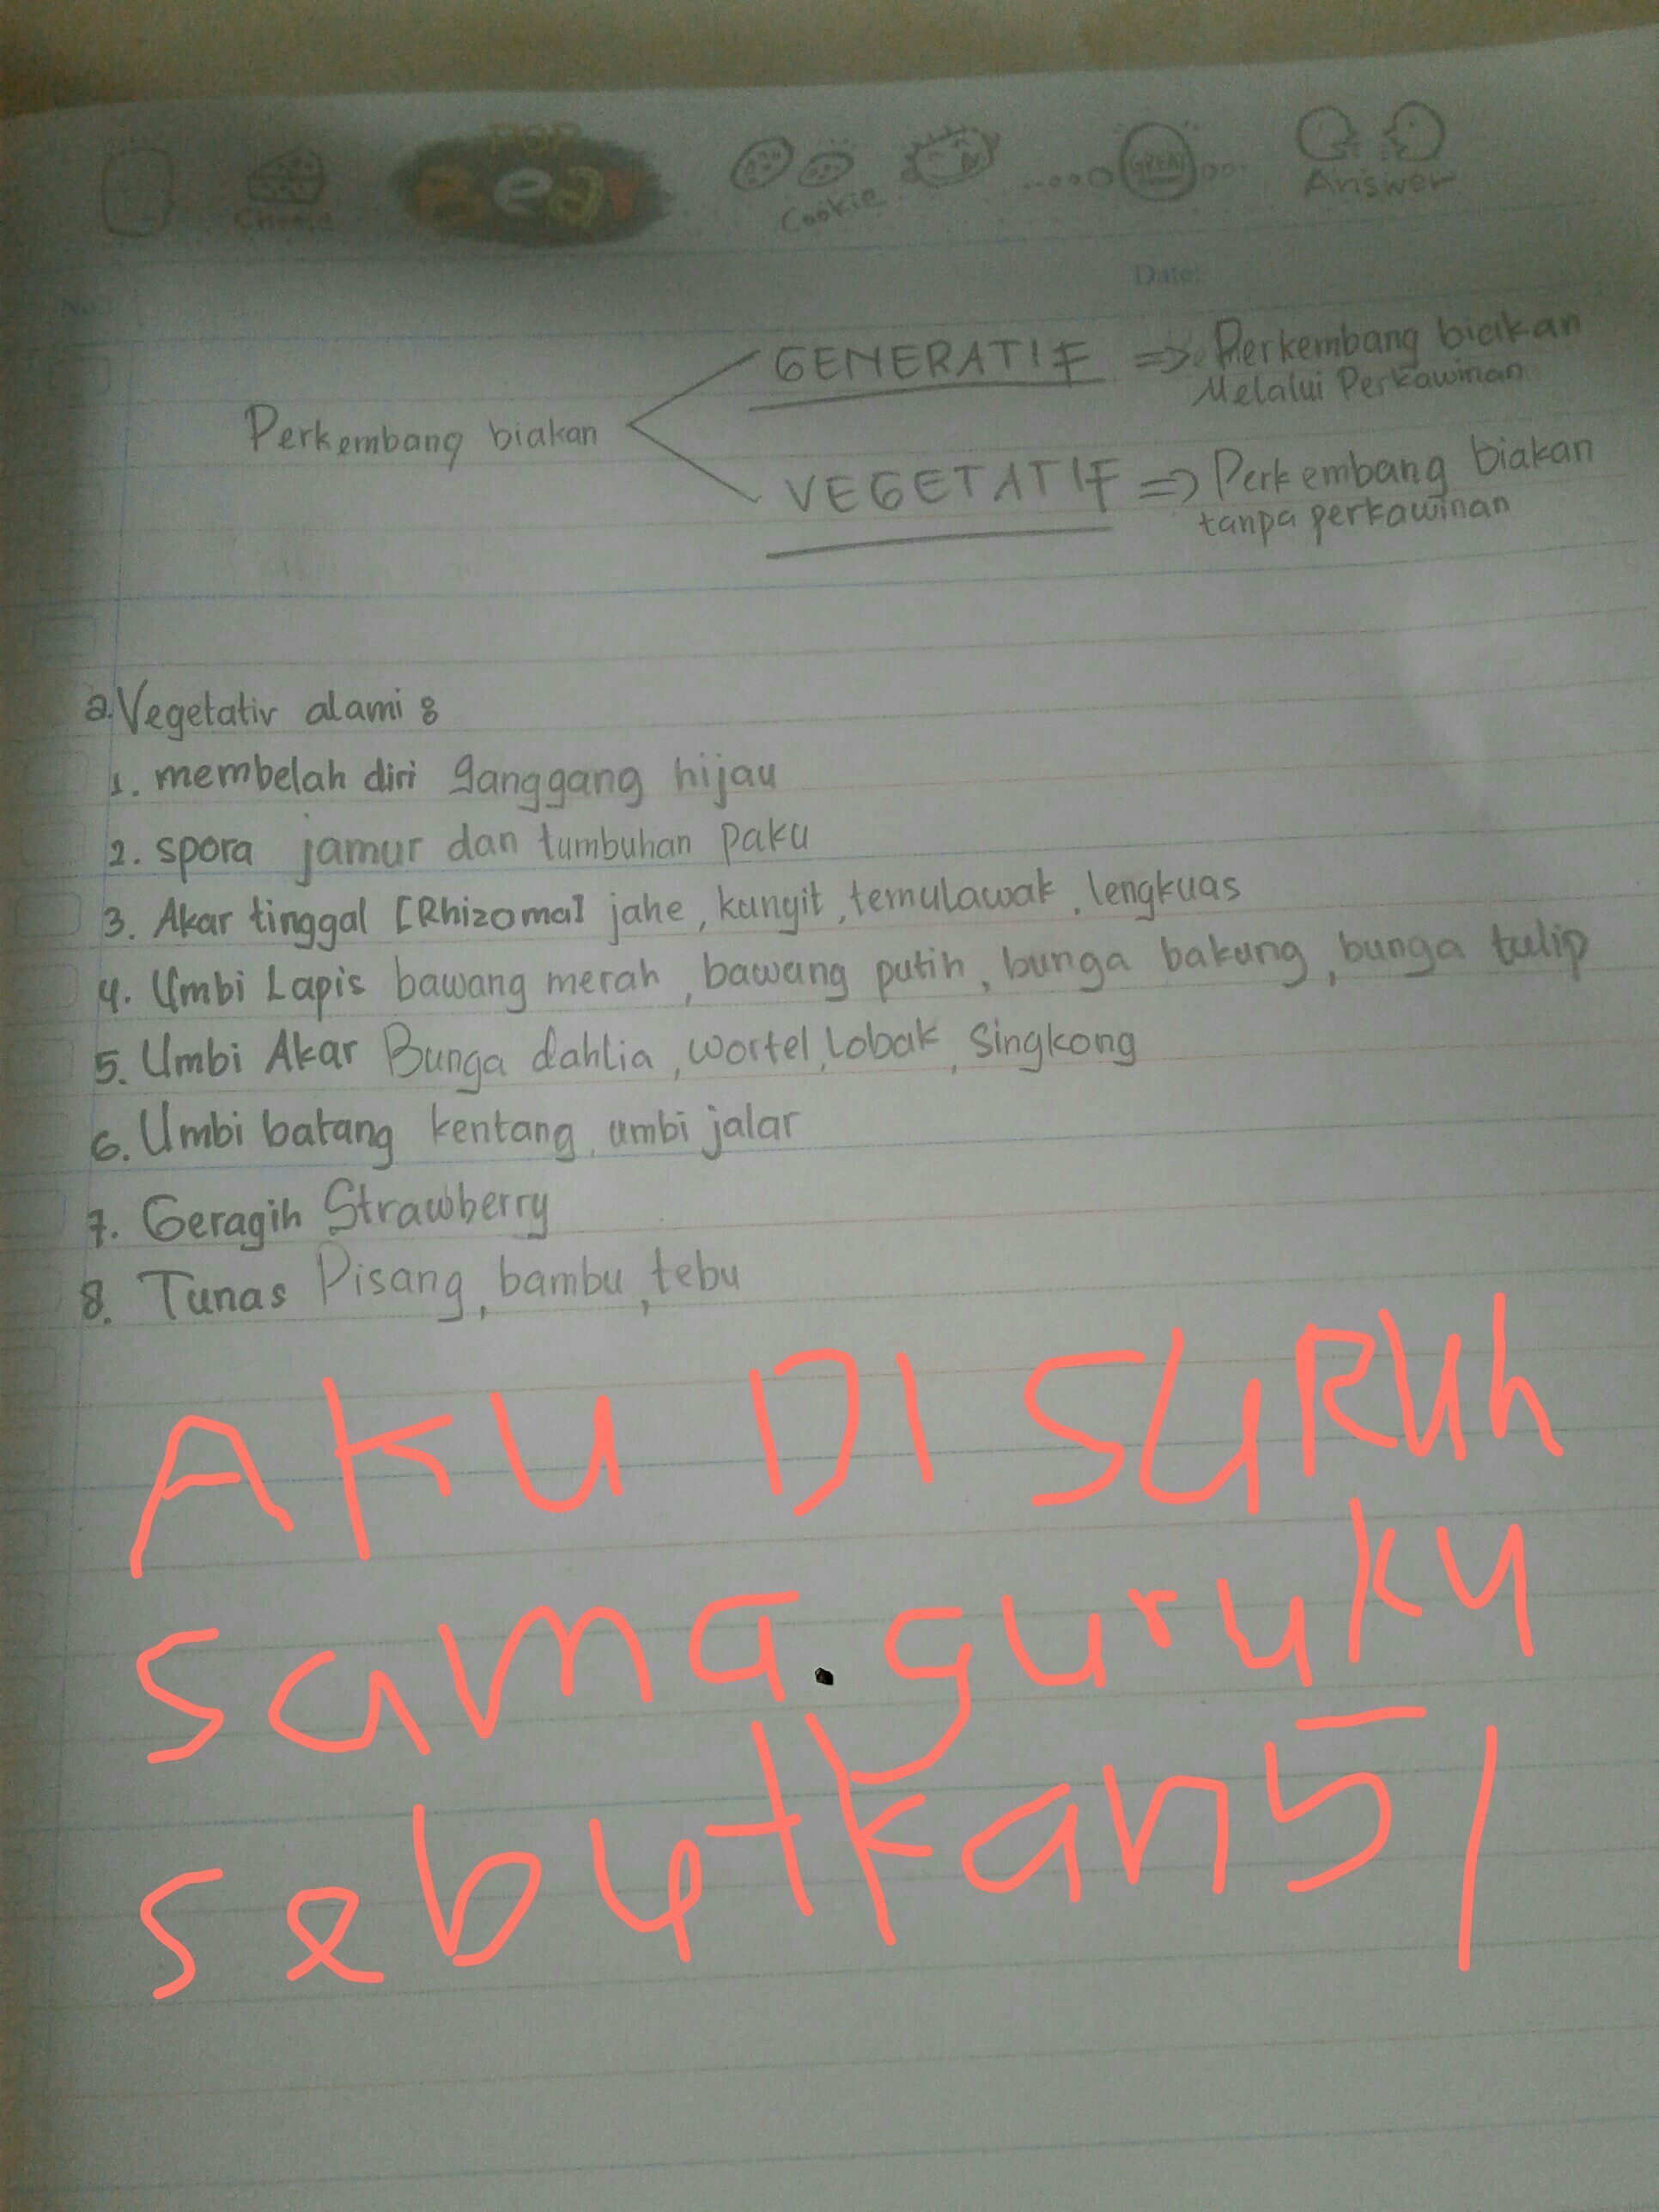 POP
Bear
Cheese
Cookie
GREAT
Answer
No.:
Date:
GENERATIF => Perkembang biakan
Melalui Perkawinan
Perkembang biakan
VEGETATIF => Perkembang biakan
tanpa perkawinan
a. Vegetativ alami :
1. membelah diri ganggang hijau
2. spora jamur dan tumbuhan paku
3. Akar tinggal [Rhizoma] jahe, kunyit, temulawak, lengkuas
4. Umbi Lapis bawang merah, bawang putih, bunga bakung, bunga tulip
5. Umbi Akar Bunga dahlia, wortel, Lobak, Singkong
6. Umbi batang kentang, umbi jalar
7. Geragih Strawberry
8. Tunas Pisang, bambu, tebu
AKU DI SURUh
sama.guruku
sebutkan 5 /